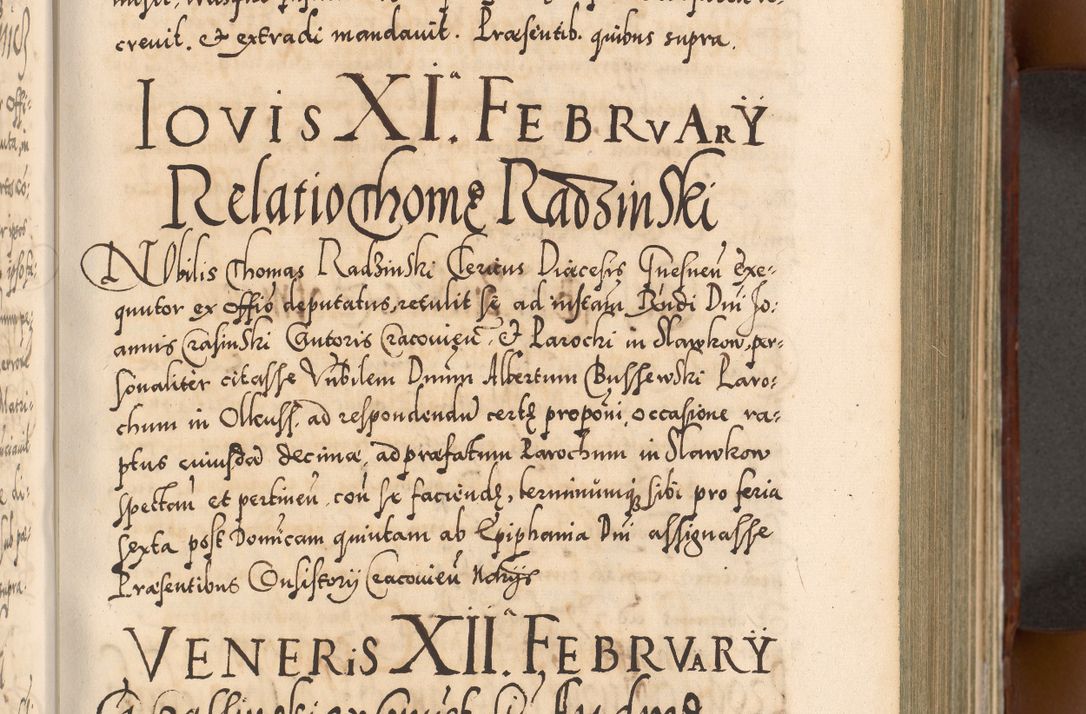 crevit. et extradi mandavit. Præsentib. quibus supra.
Iovis XI.ª FebrvArÿ
Relatio Thomę Radzinski
Nobilis Thomas Radzinski Clericus Diæcesis Gnesneń Exe-
quutor ex offiō deputatus, retulit se ad instam̄ Rńdi Dńi Jo-
annis Crasinski Cantoris Cracovień. et Parochi in Slawkow, per-
sonaliter citasse Vńbilem Dnum Albertum Bussewski Paro-
chum in Olkuss, ad respondendū certę propońi, occasione ra-
ptus cuiusdā decimæ, ad præfatum Parochum in Slawkow
spectań et pertineń, corā se faciendę, terminumq sibi pro feria
sexta post Domīcam quintam ab Epiphania Dńi assignasse
Præsentibus Consistorÿ Cracovień Notarÿs
VENERiS XII.ª FEBRVARŸ